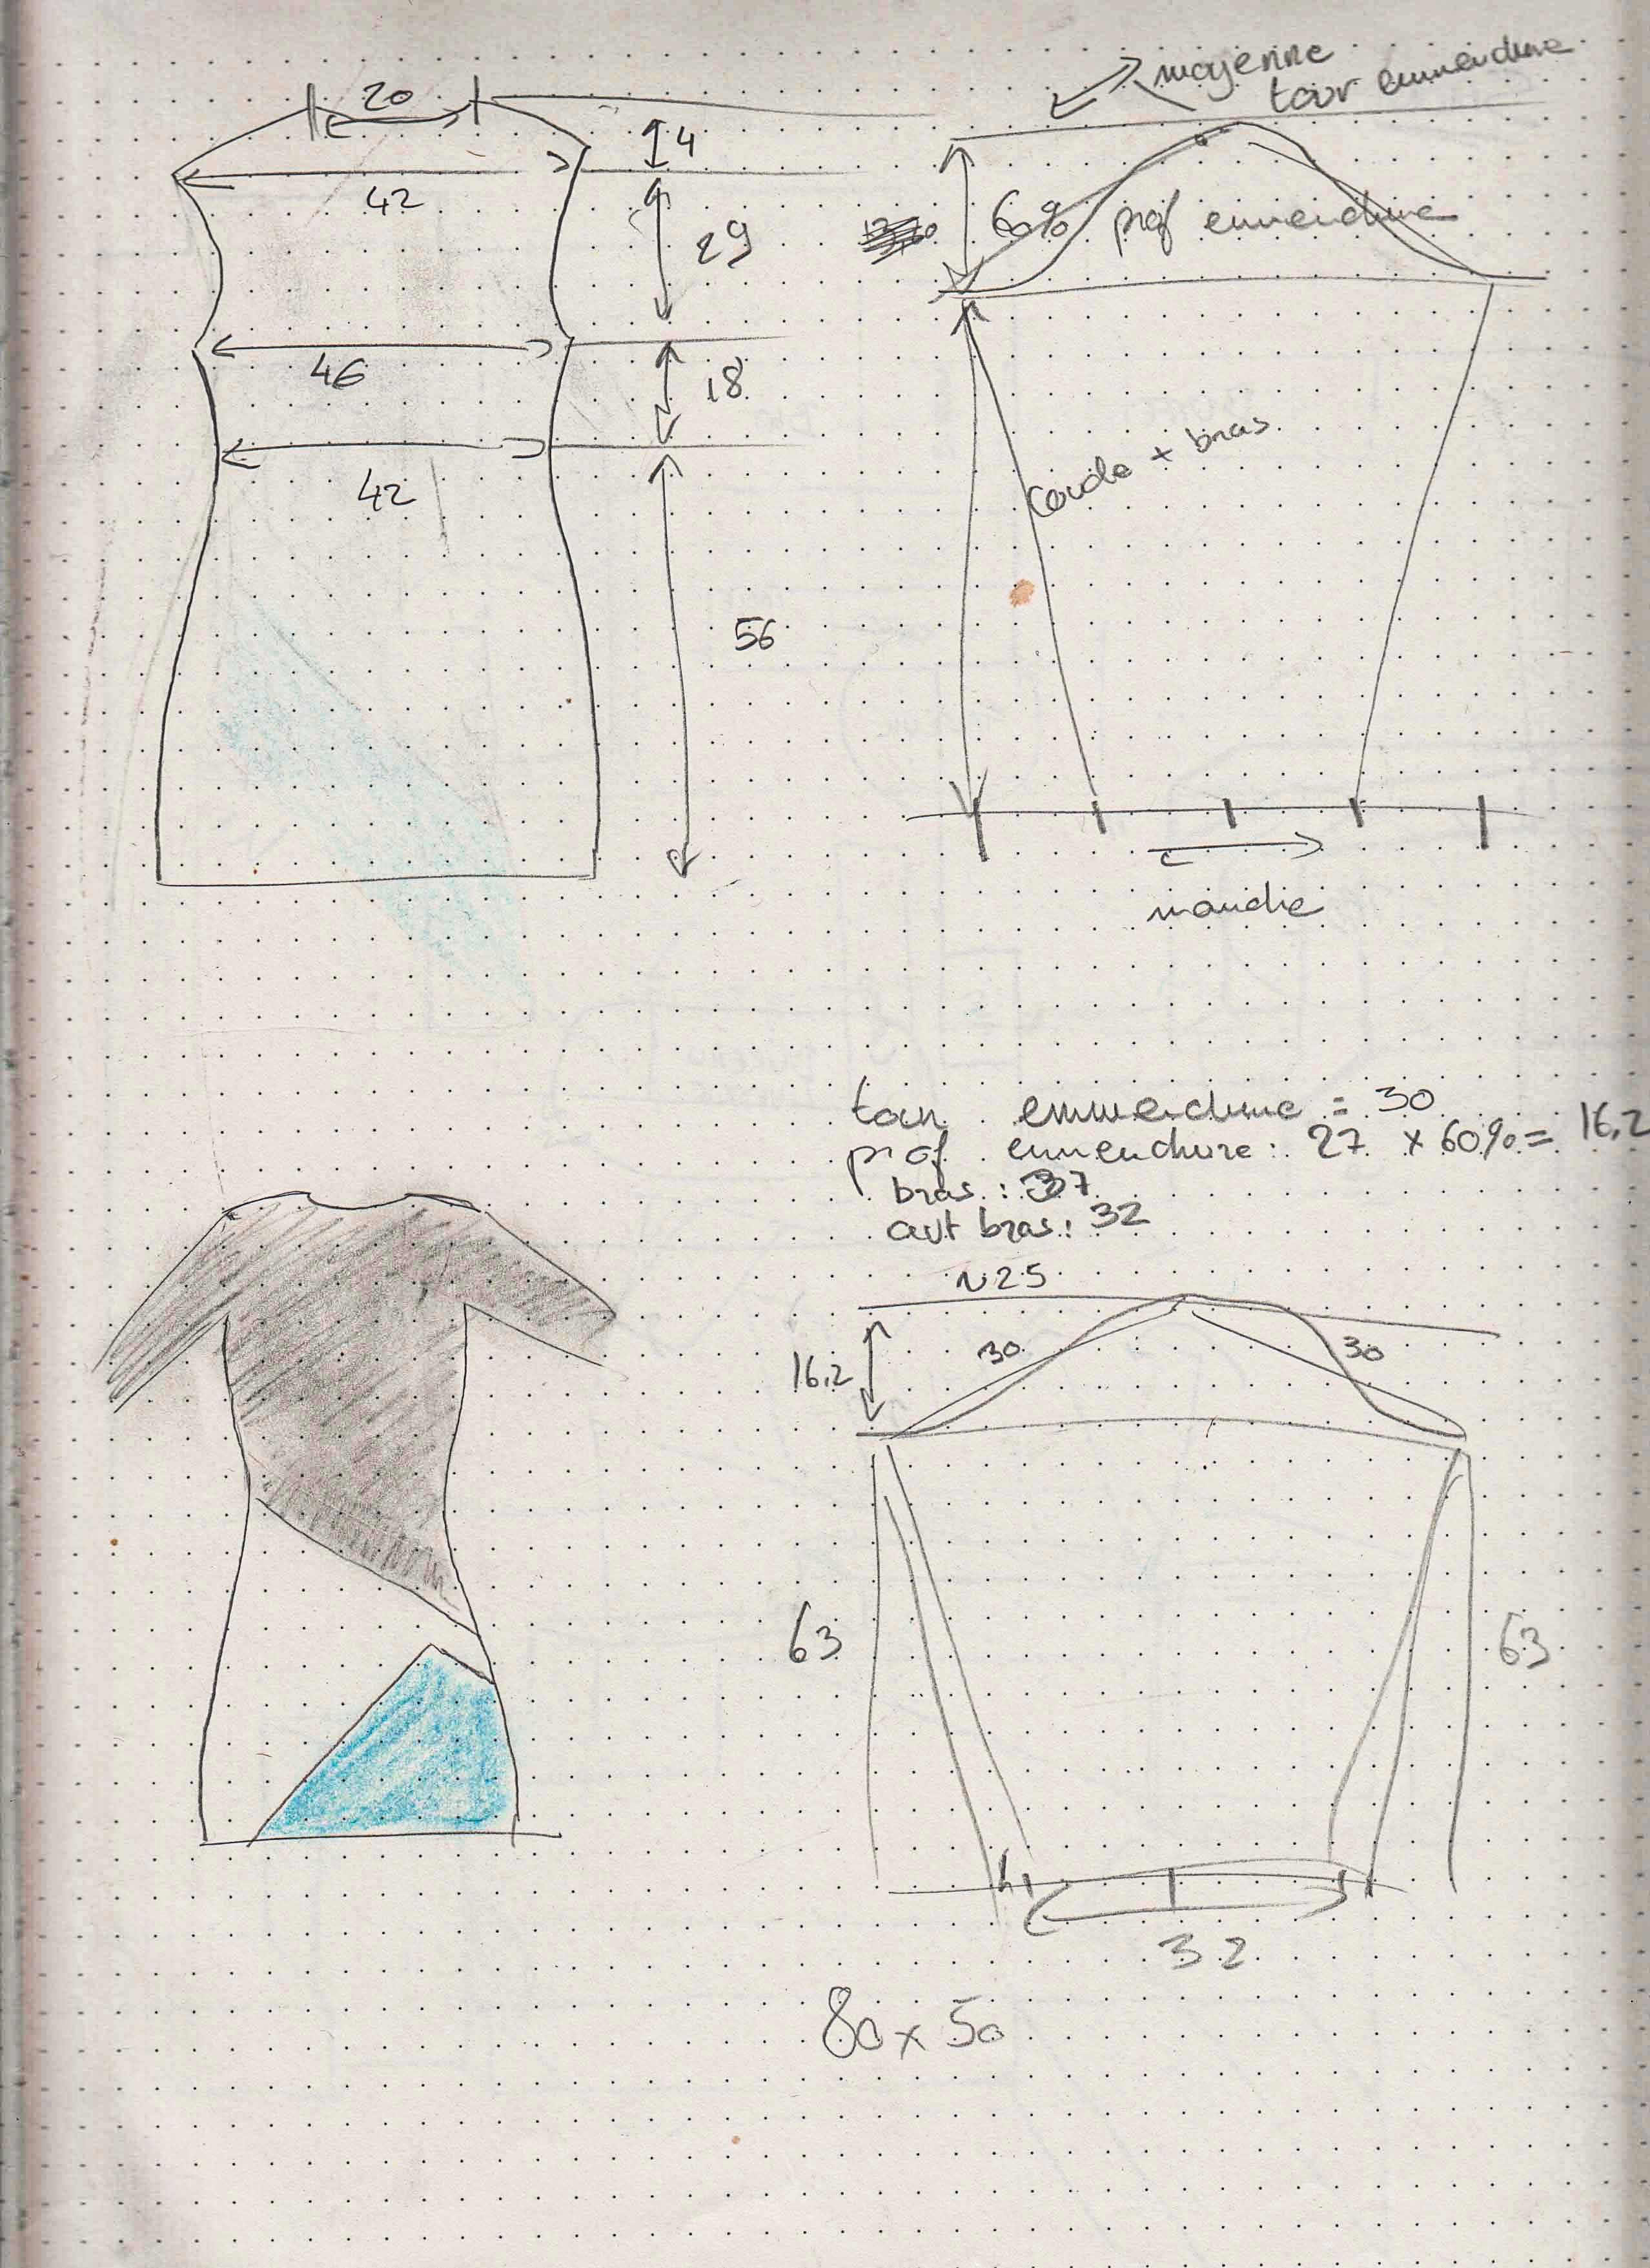 20
4
42
29
46
18
42
56
moyenne
tour emmenchure
60% prof emmenchure
Coude + bras
manche
tour emmenchure = 30
prof emmenchure : 27 x 60% = 16,2
bras : 37
avt bras : 32
~25
16,2
30
30
63
63
32
80 x 50